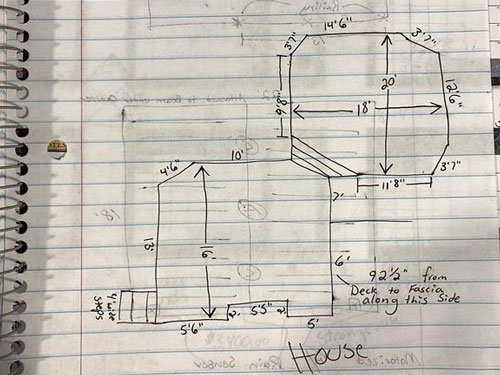 14'6"
3'7"
3'7"
20'
9'8"
18'
12'6"
3'7"
11'8"
10'
4'6"
7'
13'
16'
6'
92½" from
Deck to Fascia
along this Side
4' wide
steps
5'6"
2'
5'5"
2'
5'
House